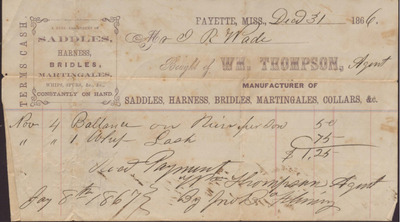 TERMS CASH.
A GOOD ASSORTMENT OF
SADDLES,
HARNESS,
BRIDLES,
MARTINGALES,
WHIPS, SPURS, &c., &c.,
CONSTANTLY ON HAND.
FAYETTE, MISS., Decd 31 1866.
Mr I R Wade
Bought of WM. THOMPSON, Agent
MANUFACTURER OF
SADDLES, HARNESS, BRIDLES, MARTINGALES, COLLARS, &c.
Nov 4 Ballance on 50
" 4 1 Whip Cash 75
$ 1,25
Payment
Wm Thompson Agent
Jay 8th 1867 By